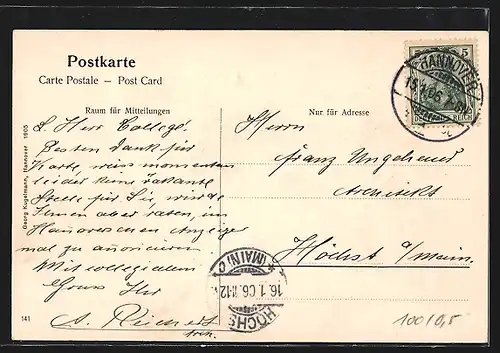 Postkarte
Carte Postale — Post Card
Raum für Mitteilungen
Nur für Adresse
L. Herr College!
Besten Dank für
Karte, weiss momentan
leider keine vakante
Stelle für Sie, würde
Ihnen aber raten, im
Hannoverschen Anzeiger
mal zu annoncieren
Mit collegialem
Gruss Ihr
A. Reichert
Herrn
Franz Ungeheuer
Architekt
Höchst a/Main.
HANNOVER
5
REICH
HÖCHST (MAIN)
16.1.06
Georg Kugelmann, Hannover 1905
141
100/0,5